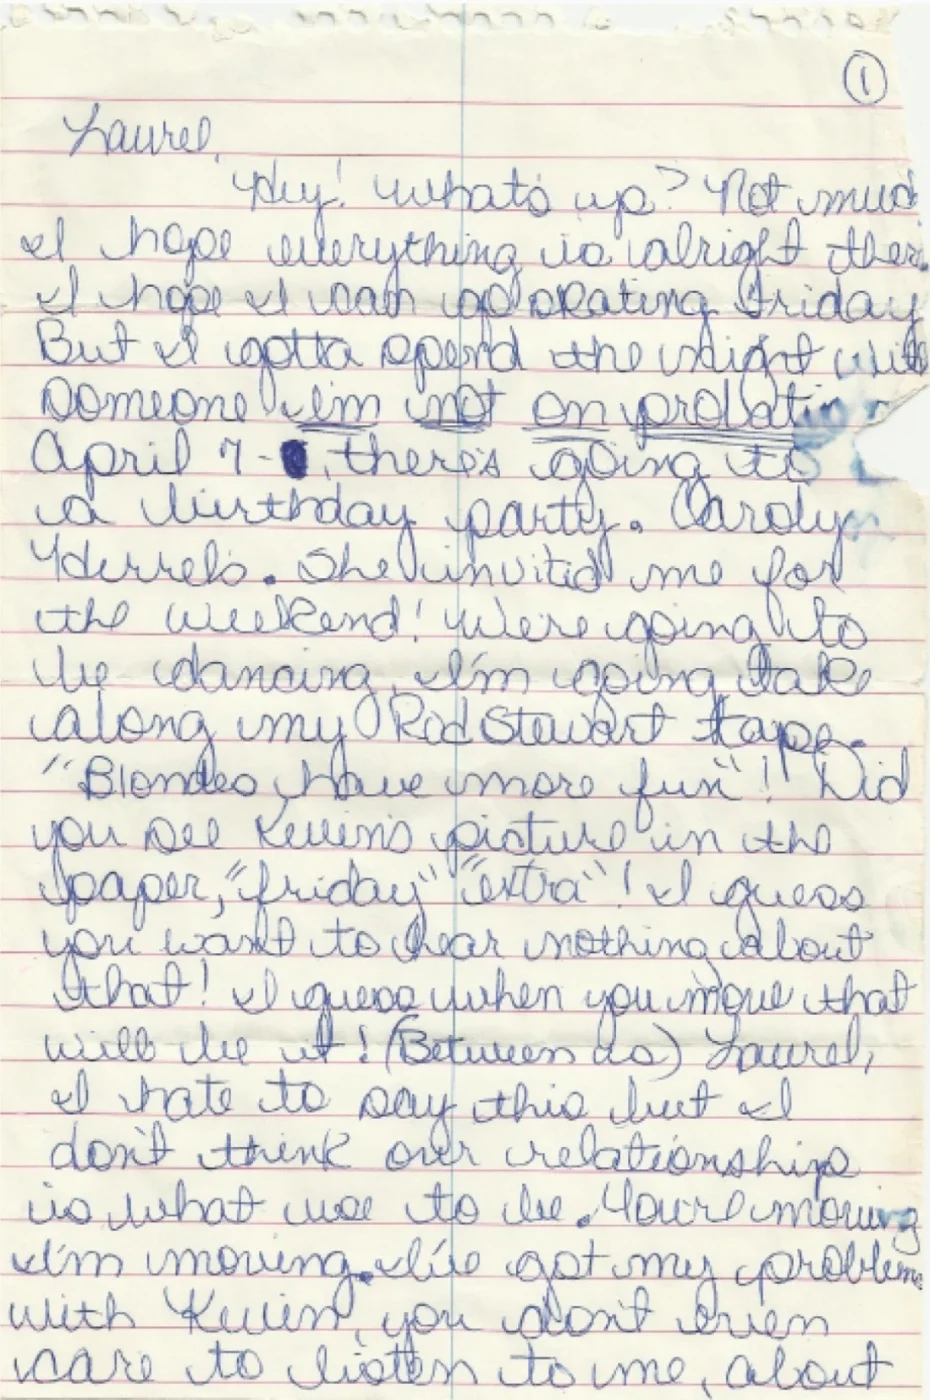 ①
Laurel,
Hey! what's up? Not much
I hope everything is alright there.
I hope I can go skating Friday
But I gotta spend the night with
someone im not on probation
April 7- , there's going to
a birthday party. Carolyn
She invited me for
the weekend! We're going to
be dancing, I'm going take
along my Rod Stewart tape.
"Blondes have more fun"! Did
you see Kevin's picture in the
paper, "friday" "extra"! I guess
you want to hear nothing about
that! I guess when you move that
will be it! (Between us) Laurel,
I hate to say this but I
don't think our relationships
is what use to be. You're moving
I'm moving. I've got my problems
with Kevin, you don't even
care to listen to me, about